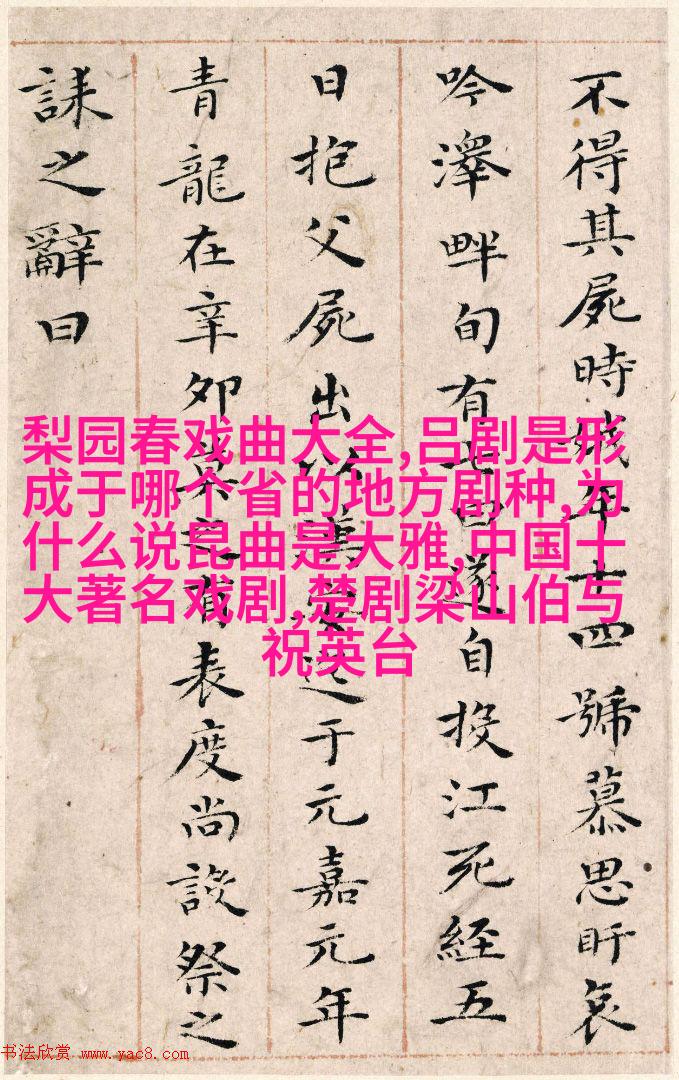 不得其屍時娥年十四號慕思盱哀
吟澤畔旬有七日遂自投江死經五
日抱父屍出以漢安迄于元嘉元年
青龍在辛卯莫之有表度尚設祭之
誄之辭曰
梨园春戏曲大全,吕剧是形
成于哪个省的地方剧种,为
什么说昆曲是大雅,中国十
大著名戏剧,楚剧梁山伯与
祝英台
书法欣赏 www.yac8.com